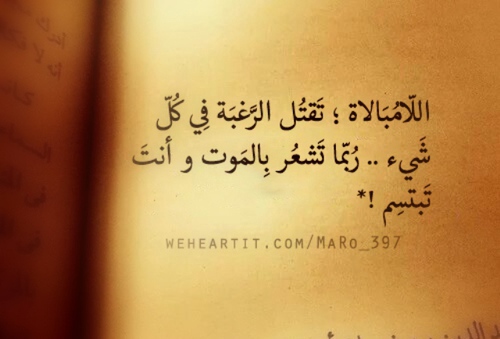 اللّامُبَالاة ؛ تَقتُل الرَّغبَة فِي كُلّ
شَيء .. رُبّما تَشعُر بِالمَوت و أنتَ
تَبتسِم !*
WEHEARTIT.COM/MARO_397